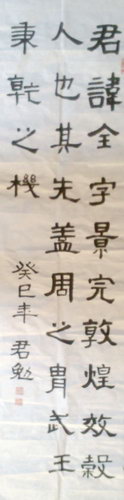 君諱全字景完敦煌效穀
人也其先蓋周之胄武王
秉乾之機
癸巳年 君勉